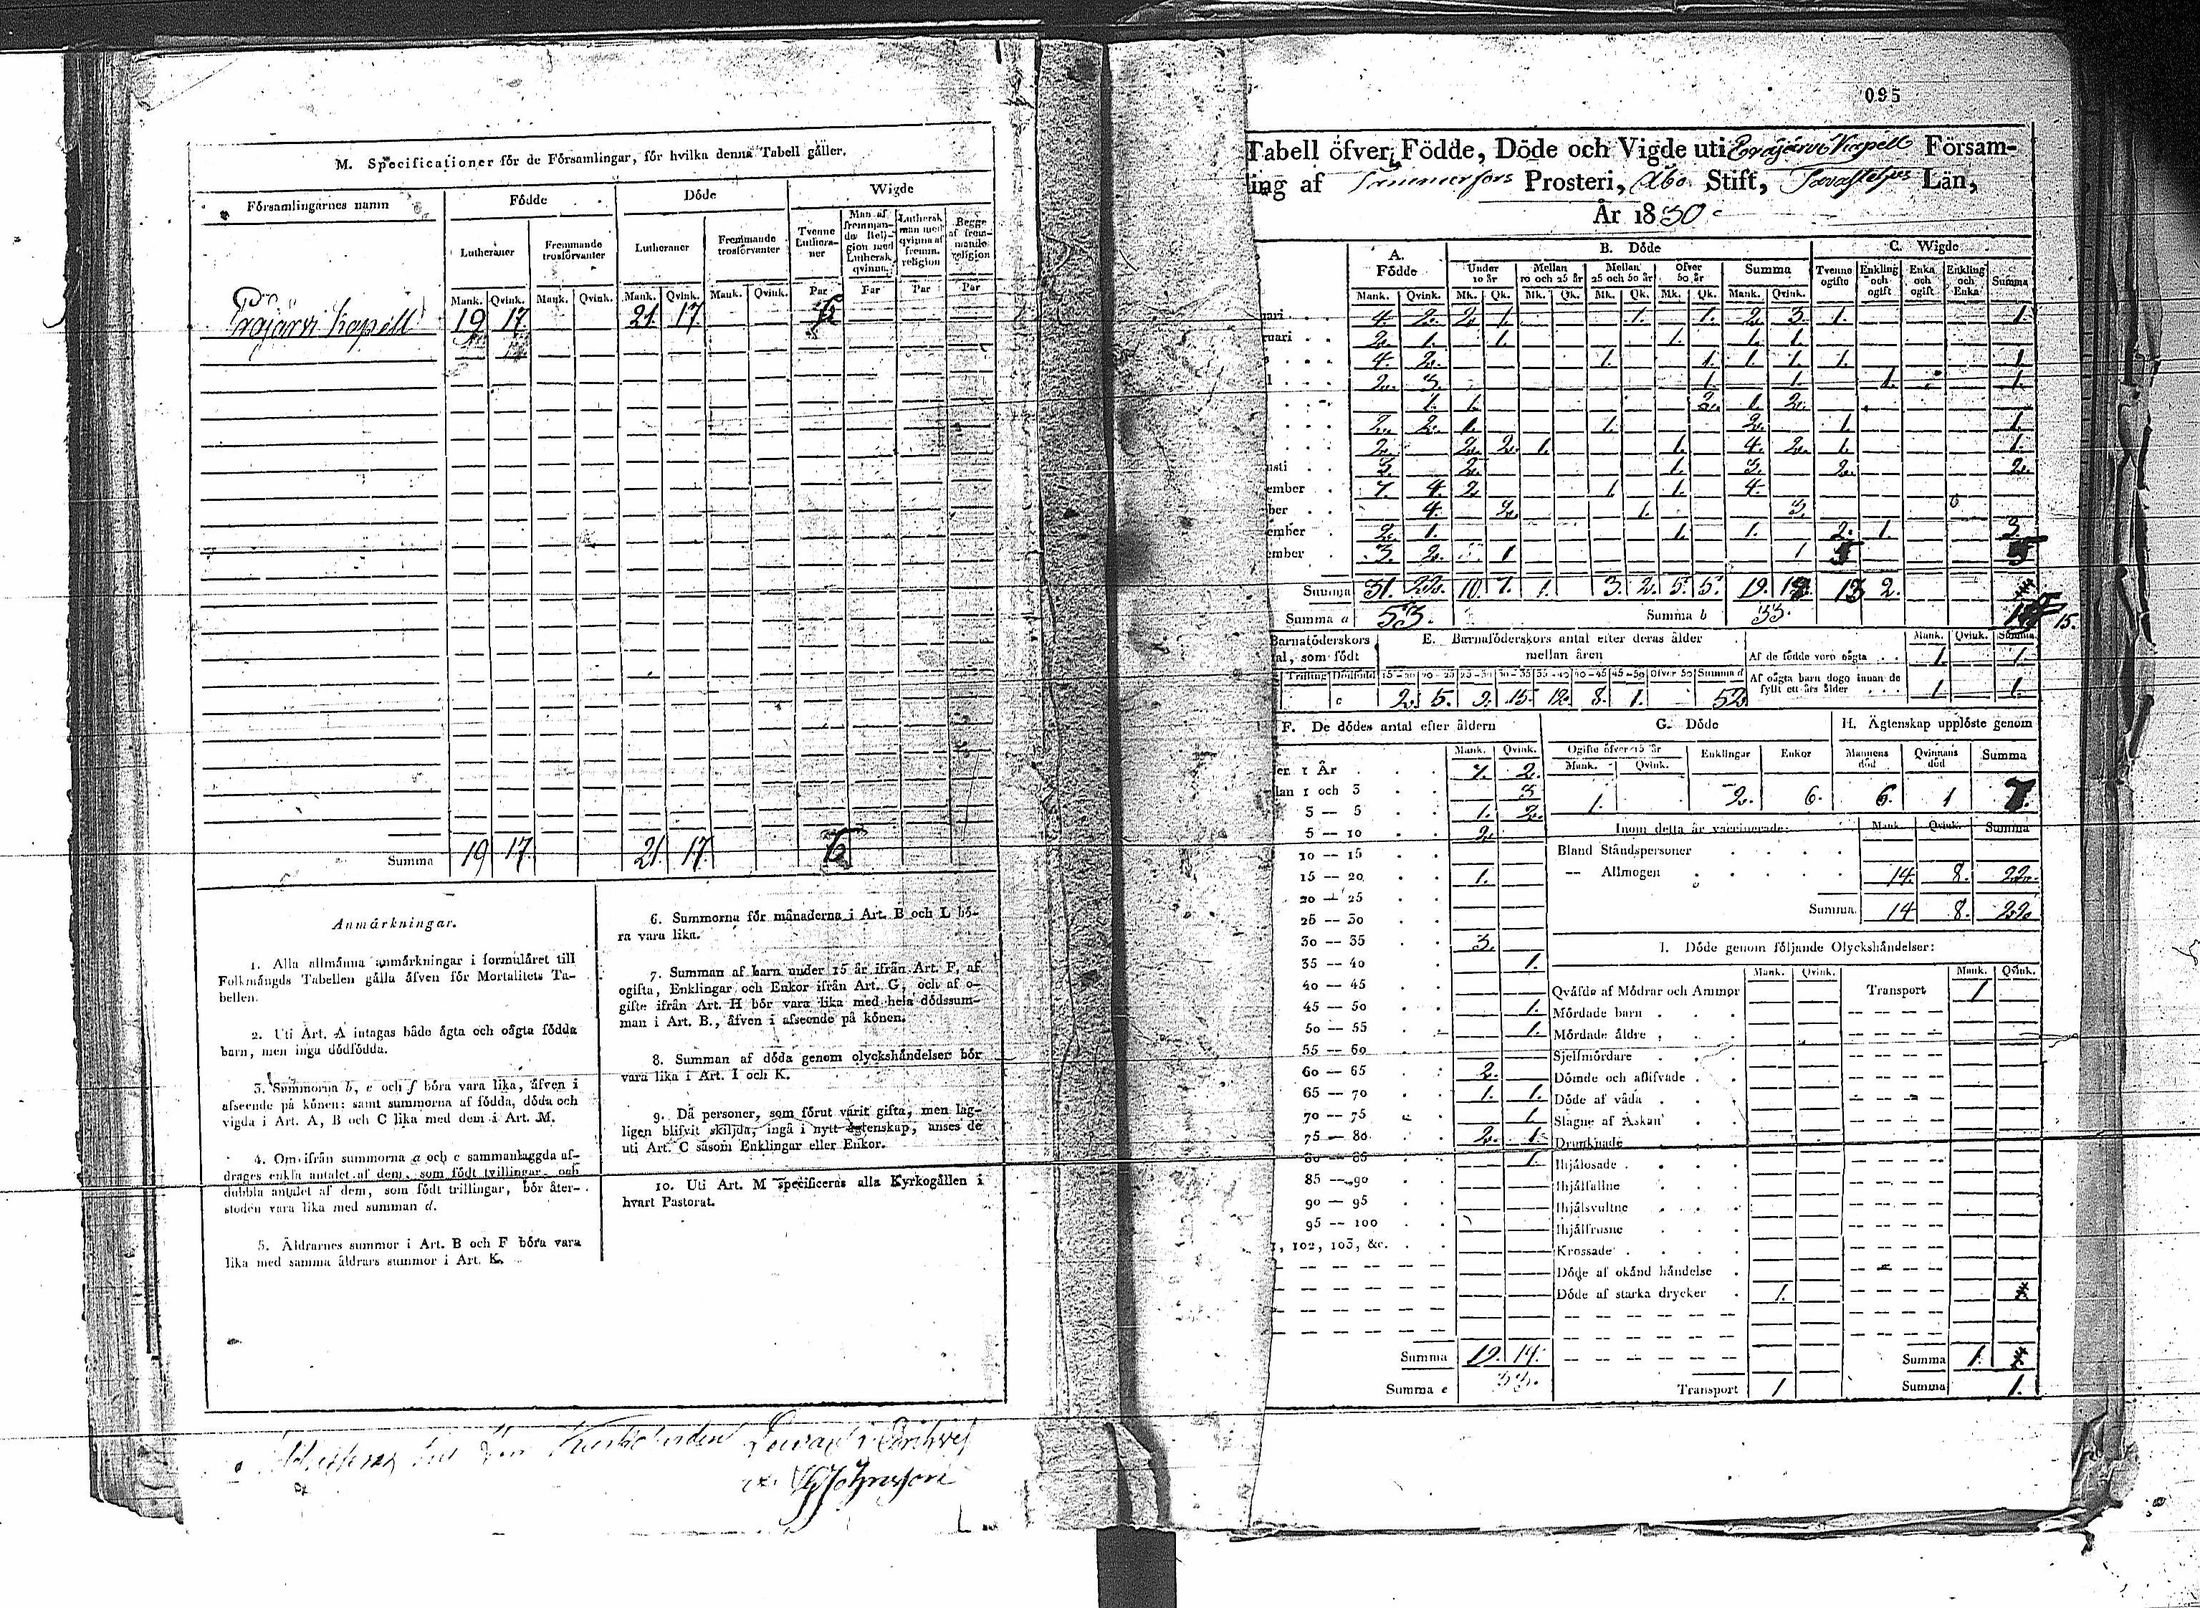 M. Specificationer för de Församlingar, för hvilka denna Tabell gäller.
Församlingarnes namn
Födde
Döde
Wigde
Lutheraner
Fremmande trosförvanter
Lutheraner
Fremmande trosförvanter
Tvenne Lutheraner
Man af fremmande Religion med Luthersk qvinna
Luthersk man med qvinna af fremm. religion
Begge af fremmande religion
Mank. Qvink. Mank. Qvink. Mank. Qvink. Mank. Qvink. Par Par Par Par
Eräjärvi Kapell 19 17 21 17
Summa 19 17. 21 17.
Anmärkningar.
1. Alla allmänna anmärkningar i formuläret till
Folkmängds Tabellen gälla äfven för Mortalitets Ta-
bellen.
2. Uti Art. A intagas både ägta och oägta födda
barn, men inga dödfödda.
3. Summorna b, e och f böra vara lika, äfven i
afseende på könen: samt summorna af födda, döda och
vigda i Art. A, B och C lika med dem i Art. M.
4. Om ifrån summorna a och c sammanlaggda af-
drages enkla antalet af dem, som födt tvillingar och
dubbla antalet af dem, som födt trillingar, bör åter-
stoden vara lika med summan d.
5. Äldrarnes summor i Art. B och F böra vara
lika med samma äldrars summor i Art. K.
6. Summorna för månaderna i Art. B och L bö-
ra vara lika.
7. Summan af barn under 15 år ifrån Art. F, af
ogifta, Enklingar och Enkor ifrån Art. G, och af o-
gifte ifrån Art. H bör vara lika med hela dödssum-
man i Art. B., äfven i afseende på könen.
8. Summan af döda genom olyckshändelser bör
vara lika i Art. I och K.
9. Då personer, som förut varit gifta, men lag-
ligen blifvit skiljda, ingå i nytt ägtenskap, anses de
uti Art. C såsom Enklingar eller Enkor.
10. Uti Art. M specificeras alla Kyrkogällen i
hvart Pastorat.
095
Tabell öfver Födde, Döde och Vigde uti Eräjärvi Kapell Församling
af Tammerfors Prosteri, Åbo Stift, Tavastehus Län,
År 1830
A. Födde
B. Döde
C. Wigde
Under 10 år
Mellan 10 och 25 år
Mellan 25 och 50 år
Öfver 50 år
Summa
Tvenne ogifte
Enkling och ogift
Enka och ogift
Enkling och Enka
Summa
Mank. Qvink. Mk. Qk. Mk. Qk. Mk. Qk. Mk. Qk. Mank. Qvink.
uari 4. 2. 2. 1. 1. 1. 2. 3. 1. 1.
ruari 2. 1. 1. 1. 1. 1.
4. 2. 1. 1. 1. 1. 1. 1.
2. 3. 1. 1. 1. 1.
1. 1. 2. 1. 2.
2. 2. 1. 1. 2. 1. 1.
2. 2. 2. 1. 1. 4. 2. 1. 1.
usti 3. 2. 1. 3. 2. 2.
ember 7. 4. 2 1 1. 4.
ber 4. 2. 1. 3.
ember 2. 1. 1. 1. 2. 1. 3.
ember 3. 2. 1 1 5 5
Summa 31. 22. 10. 7. 1. 3. 2. 5. 5. 19. 13 2.
Summa a 53. Summa b 33. 15.
Barnaföderskors
al, som födt
Trilling Dödfödd
E. Barnaföderskors antal efter deras ålder
mellan åren
15-20 20-25 25-30 30-35 35-40 40-45 45-50 Öfver 50 Summa d
c 2. 5. 9. 15. 12. 8. 1. 52
Mank. Qvink. Summa
Af de födde voro oägta 1. 1.
Af oägta barn dogo innan de
fyllt ett års ålder 1. 1.
F. De dödes antal efter åldern
Mank. Qvink.
er 1 År 7. 2.
lan 1 och 3 3
3 — 5 1. 2.
5 — 10 2
10 — 15
15 — 20 1.
20 — 25
25 — 30
30 — 35 3.
35 — 40 1.
40 — 45
45 — 50 1.
50 — 55 1.
55 — 60
60 — 65 2.
65 — 70 1. 1.
70 — 75 1.
75 — 80 2. 1.
80 — 85 1.
85 — 90
90 — 95
95 — 100
, 102, 103, &c.
Summa 19. 14.
Summa e 33.
G. Döde
Ogifte öfver 15 år
Mank. Qvink.
Enklingar Enkor
1. 2. 6.
H. Ägtenskap upplöste genom
Mannens död Qvinnans död Summa
6. 1 7.
Inom detta år vaccinerade: Mank. Qvink. Summa
Bland Ståndspersoner
— Allmogen 14. 8. 22.
Summa 14 8. 22
I. Döde genom följande Olyckshändelser:
Mank. Qvink. Mank. Qvink.
Qväfde af Mödrar och Ammor Transport 1
Mördade barn
Mördade äldre
Sjelfmördare
Dömde och aflifvade
Döde af våda
Slagne af Åskan
Drunknade
Ihjälosade
Ihjälfallne
Ihjälsvultne
Ihjälfrusne
Krossade
Döde af okänd händelse
Döde af starka drycker 1.
Summa 1.
Transport 1 Summa 1.